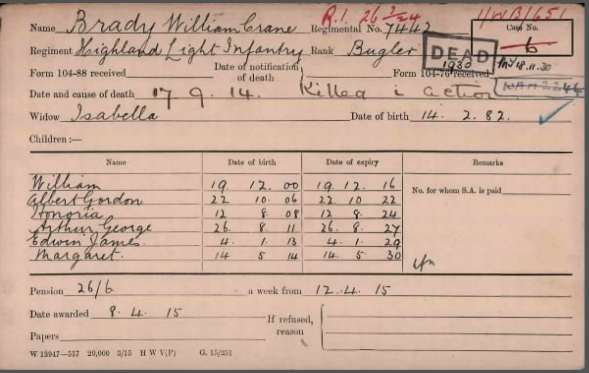 R.I. 26 3/24 11/WB/1651
Name Brady William Crane Regimental No. 7442 Case No. 6
Regiment Highland Light Infantry Rank Bugler DEAD
1930 18.11.30
Form 104-88 received Date of notification of death Form 104-76 received
Date and cause of death 17 9. 14. Killed i action
Widow Isabella Date of birth 14. 2. 82.
Children:—
Name Date of birth Date of expiry Remarks
William 19 12. 00 19 12. 16 No. for whom S.A. is paid
Albert Gordon 22 10 06 22 10 22
Honoria 12 8 08 12 8. 24
Arthur George 26. 8 11 26. 8. 27
Edwin James. 4. 1. 13 4. 1. 29
Margaret. 14 5 14 14. 5. 30
Pension 26/6 a week from 12.4. 15
Date awarded 8. 4. 15 If refused, reason
Papers
W 13947—517 20,000 3/15 H W V(P) G. 15/251